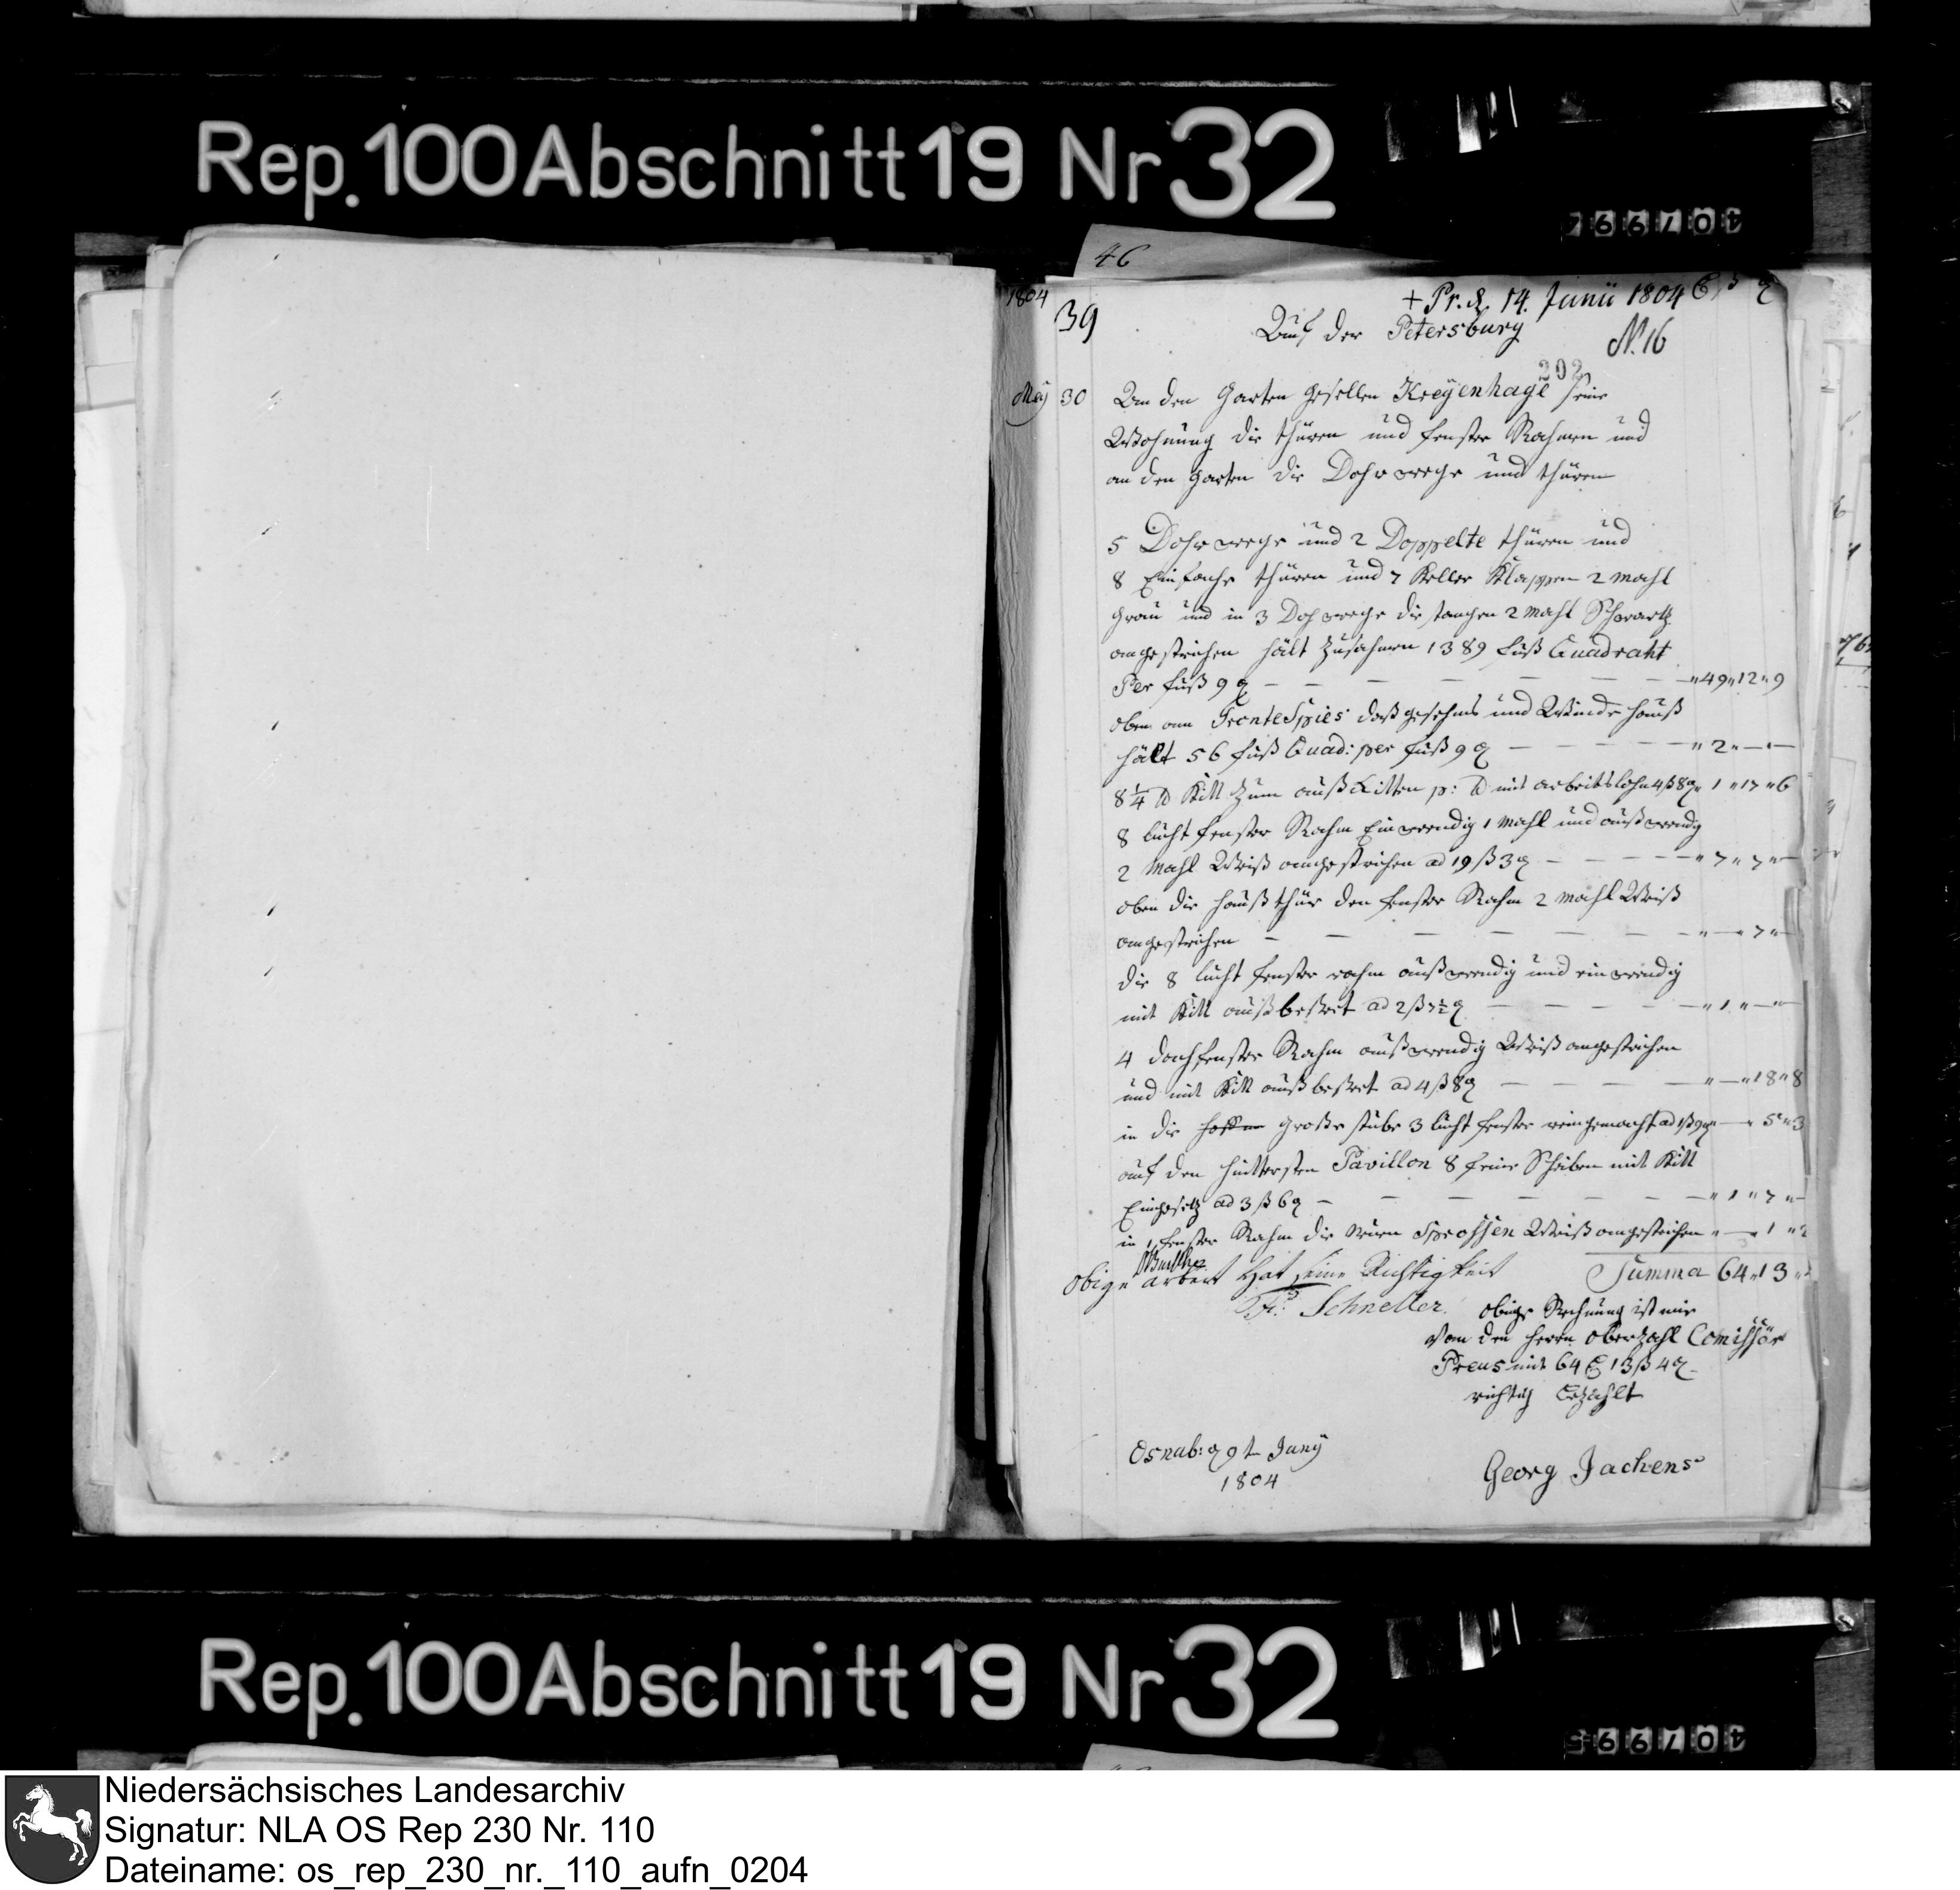 Rep. 100 Abschnitt 19 Nr 32
46
1804
39
+ Pr. d. 14. Junii 1804
Auf der Petersburg
N. 16
202
Mey 30 An den Garten gesellen Kreyenhage seine
Wohnung die thüren und fenster Rahmen und
an den garten die Dohrwege und thüren
5 Dohrwege und 2 Doppelte thüren und
8 Einfache thüren und 7 Keller Klappen 2 mahl
grau und in 3 Dohwege die stangen 2 mahl Schwartz
angestrichen hält zusahmen 1389 fuß Quadraht
Per fuß 9 ₰ — — — — — — " 49 " 12 " 9
oben am FronteSpies daß gesehms und Winde hauß
hält 56 fuß Quad: per fuß 9 ₰ — — — — " 2 " — " —
8 1/4 ℔ Kitt zum auß Kitten p: ℔ mit arbeitslohn 4 ß 8 ₰ " 1 " 17 " 6
8 lucht fenster Rahm Einwendig 1 mahl und außwendig
2 mahl Weiß angestrichen ad 19 ß 3 ₰ — — — — " 7 " 7 " —
oben die haußthür den fenster Rahm 2 mahl Weiß
angestrichen — — — — — — " — " 7 " —
die 8 lucht fenster rahm außwendig und einwendig
mit Kitt außbeßert ad 2 ß 7 1/2 ₰ — — — — " 1 " — " —
4 dachfenster Rahm außwendig Weiß angestrichen
und mit Kitt außbeßert ad 4 ß 8 ₰ — — — — " — " 18 " 8
in die große stube 3 lucht fenster reingemacht ad 1 ß 9 ₰ " — " 5 " 3
auf den hintersten Pavillon 8 feine Scheiben mit Kitt
Eingesetz ad 3 ß 6 ₰ — — — — — — " 1 " 7 " —
in 1 fenster Rahm die neuen Sprossen Weiß angestrichen " — " 1 " 2
Obige arbeit Hat seine Richtigkeit
Summa 64 " 13 "
Schneller.
obige Rechnung ist mir
Von den herrn oberzahl Comissär
Preus mit 64 13 ß 4 ₰
richtig Bezahlt
Osnab: d 9t Juny
1804
Georg Jachens
Rep. 100 Abschnitt 19 Nr 32
Niedersächsisches Landesarchiv
Signatur: NLA OS Rep 230 Nr. 110
Dateiname: os_rep_230_nr._110_aufn_0204